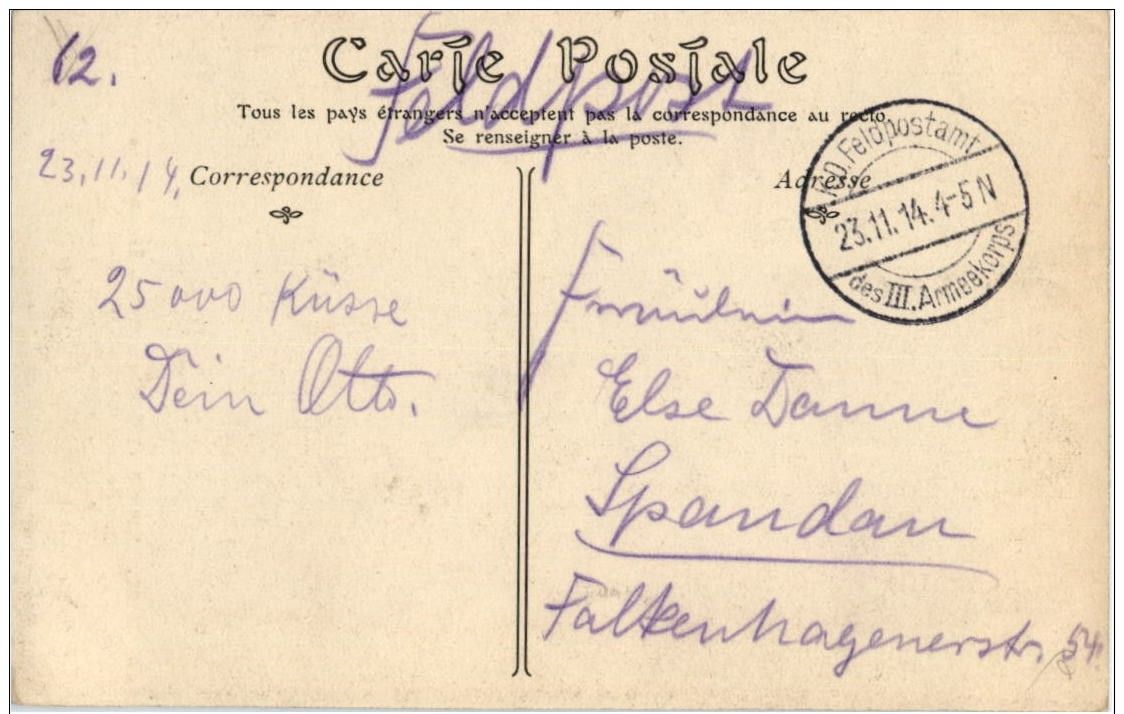 62.
Carte Postale
Feldpost
Tous les pays étrangers n'acceptent pas la correspondance au recto.
Se renseigner à la poste.
23.11.14.
Correspondance
Adresse
Kgl. Feldpostamt
23.11.14.4-5N
des III. Armeekorps
25000 Küsse
Dein Otto.
Fräulein
Else Damm
Spandau
Falkenhagenerstr. 54.